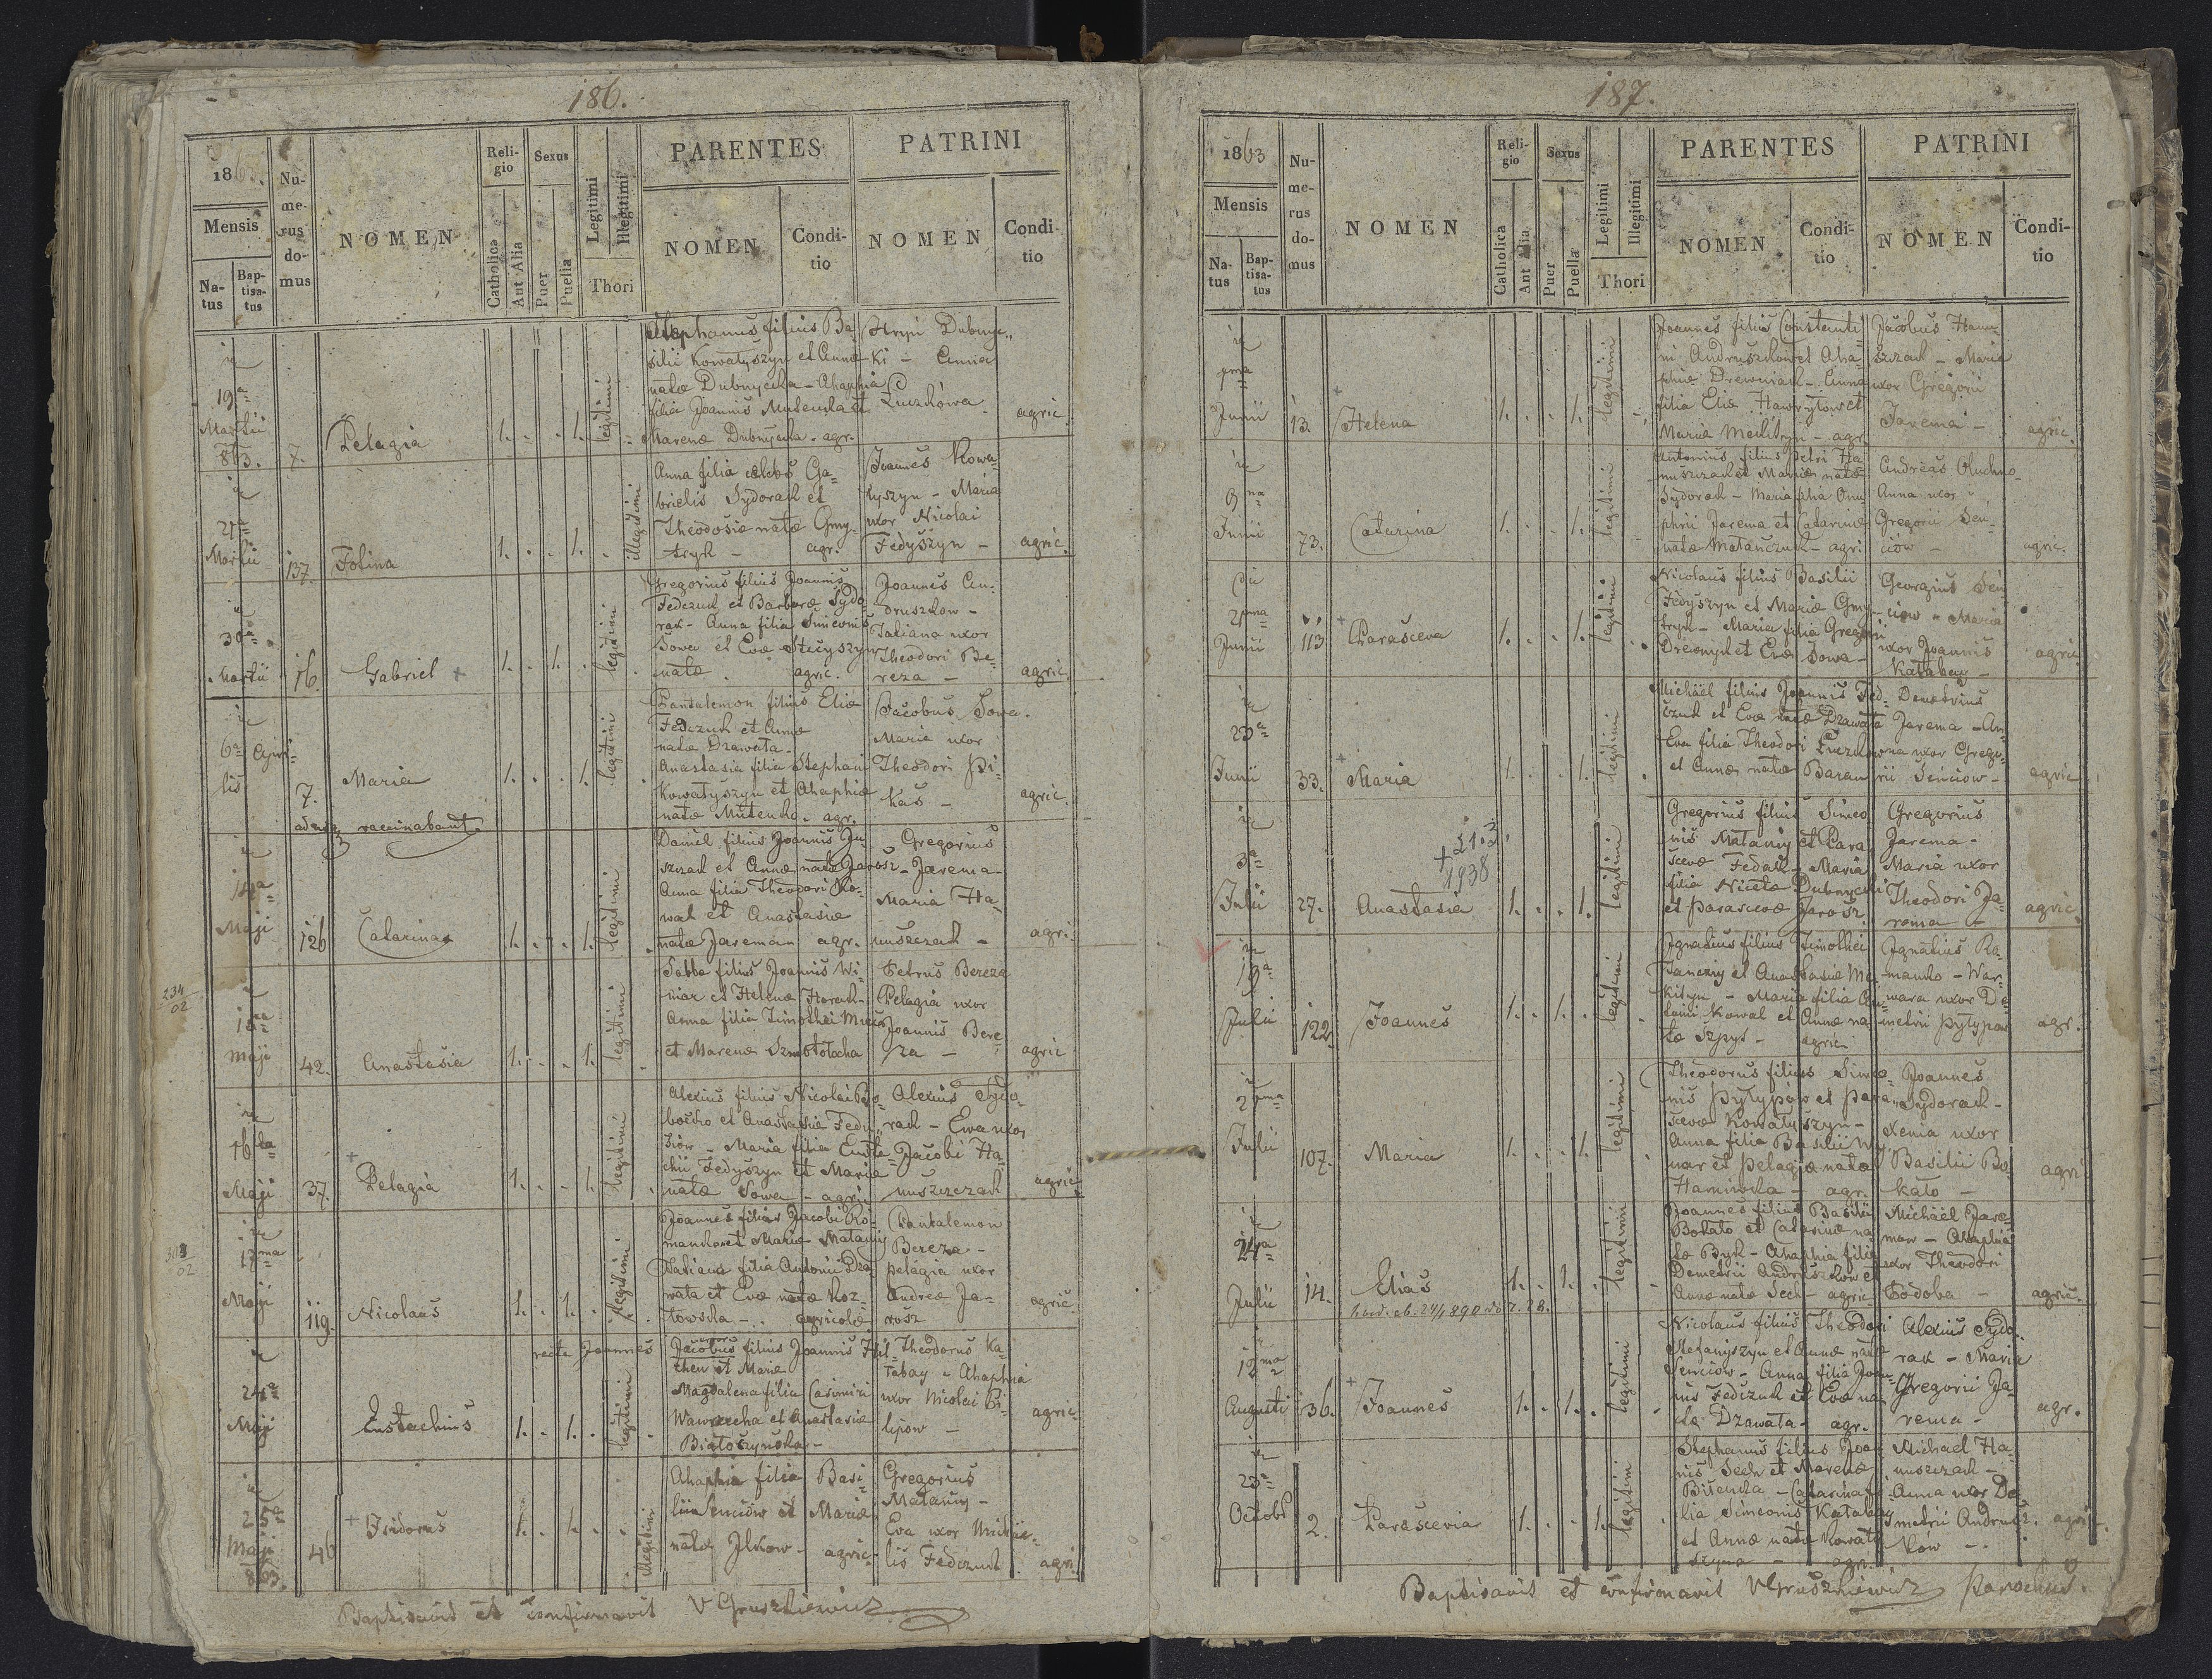 186.
1863.
Mensis
Na-
tus
Bap-
tisa-
tus
Nu-
me-
rus
do-
mus
NOMEN
Reli-
gio
Catholica
Aut Alia
Sexus
Puer
Puella
Legitimi
Illegitimi
Thori
PARENTES
NOMEN
Condi-
tio
PATRINI
NOMEN
Condi-
tio
19a
Martii
863.
7.
Pelagia
1. . . 1.
legitimi
Stephanus filius Ba-
silii Kowałyszyn et Annæ
natæ Dubnycka - Ahaphia
filia Joannis Mutenka et
Marenæ Dubnycka - agr.
Hryń Dubnyc-
ki - Anna
Łuczkowa
agric.
27a
Martii
137.
Fotina
1. . . 1. .
illegitimi
Anna filia Ga-
brielis Sydorak et
Theodosiæ natæ Gmy-
tryk - agr.
Joannes Kowa-
łyszyn - Maria
uxor Nicolai
Fedyszyn -
agric.
30a
Martii
16.
Gabriel +
1. . 1. .
legitimi
Gregorius filius Joannis
Fedczuk et Barbaræ Sydo-
rak - Anna filia Simeonis
Sowa et Evæ Stecyszyn
natæ . agric.
Joannes An-
druszkow -
Tatiana uxor
Theodori Be-
reza -
agric.
6a Apri-
lis
7.
Maria
1. . . 1.
legitimi
Pantalemon filius Eliæ
Fedczuk et Annæ
natæ Dzawata -
Anastasia filia Stephani
Kowałyszyn et Ahaphiæ
natæ Mutenka - agr.
Jacobus Sowa.
Maria uxor
Theodori Pi-
kas -
agric.
vaccinabant.
14a
Maji
126
Catarina
1. . . 1.
legitimi
Daniel filius Joannis Ju-
szczak et Annæ natæ Jarosz -
Anna filia Theodori Ko-
wal et Anastasiæ
natæ Jarema agr.
Gregorius
Jarema -
Maria Ha-
nuszczak -
agri.
234
02
Maji
42.
Anastasia
1. . . 1.
legitimi
Sabba filius Joannis Wi-
niar et Helenæ Horak -
Anna filia Timothei
et Marenæ
Petrus Bereza
Pelagia uxor
Joannis Bere-
za -
agric
16ta
Maji
37.
+ Pelagia
1. . . 1.
legitimi
Alexius filius Nicolai Bo-
boczko et Anastasiæ
Maria filia Eusta-
chii Fedyszyn et Mariæ
natæ Sowa - agric
Alexius Sydo-
rak - Ewa uxor
Jacobi Ha-
nuszczak
agric.
303
02
17ma
Maji
119.
Nicolaus
1. . 1. .
Joannes filius Jacobi Ro-
manko et Mariæ Matanij
Tatiana filia Antonii Dza-
wata et Evæ natæ Koz-
łowska - agricolæ
Pantalemon
Bereza -
Pelagia uxor
Andreæ Ja-
rosz
agric.
24a
Maji
recte Joannes
Eustachius
1. . 1. .
legitimi
Jacobus filius Joannis
et Mariæ
Magdalena filia Casimiri
Wawrzecha et Anastasiæ
Białoszyńska -
Theodorus Ka-
tabay - Ahaphia
uxor Nicolai Fi-
lipow -
agric.
25a
Maji
863.
46
+ Isidorus
1. . 1. .
illegitimi
Ahaphia filia Basi-
lii Senciów et Mariæ
natæ Ilkow - agric.
Gregorius
Matanij -
Eva uxor Michae-
lis Fedczuk
agri.
Baptisavit et confirmavit V Gruszkiewicz
187.
1863
Mensis
Na-
tus
Bap-
tisa-
tus
Nu-
me-
rus
do-
mus
NOMEN
Reli-
gio
Catholica
Aut Alia
Sexus
Puer
Puella
Legitimi
Illegitimi
Thori
PARENTES
NOMEN
Condi-
tio
PATRINI
NOMEN
Condi-
tio
1ma
Junii
13.
+ Helena
1. . . 1.
legitimi
Joannes filius Constanti-
ni Andruszkow et Aha-
phiæ Drewniak - Anna
filia Eliæ Hawryłow et
Mariæ - agr.
Jacobus Hanu-
szczak - Maria
uxor Gregorii
Jarema -
agric.
9na
Junii
73.
Catarina
1. . . 1.
legitimi
Antonius filius Petri Ha-
nuszczak et Mariæ natæ
Sydorak - Maria filia Onu-
phrii Jarema et Catarinæ
natæ Matanczuk - agri
Andreas
Anna uxor
Gregorii Sen-
ciów -
agric.
21ma
Junii
113.
+ Parasceva
1. . . 1.
legitimi
Nicolaus filius Basilii
Fedyszyn et Mariæ Gmy-
tryk - Maria filia Gregorii
et Evæ Sowa -
Georgius Sen-
ciów - Maria
uxor Joannis
Katabay -
agric.
23a
Junii
33.
+ Maria
1. . . 1.
legitimi
Michael filius Joannis Fed-
czuk et Evæ natæ Dzawata
Eva filia Theodori Łuczków
et Annæ natæ Baran
Demetrius
Jarema - An-
na uxor Grego-
rii Senciów -
agric
3a
Julii
27.
Anastasia
+ 21.3
1938
1. . . 1.
legitimi
Gregorius filius Simeo-
nis Matanij et Para-
scevæ Fedak - Maria
filia Nicetæ Dubnycki
et Parascevæ Jarosz.
Gregorius
Jarema -
Maria uxor
Theodori Ja-
rema -
agric.
19a
Julii
122
Joannes
1. . 1. .
legitimi
Ignatius filius Timothei
Janczij et Anastasiæ Mi-
kityn - Maria filia An-
tonii Kowal et Annæ na-
tæ Szpyt - agric.
Ignatius Ro-
manko - War-
wara uxor De-
metrii Pyłypow
agr.
Julii
107.
Maria
1. . . 1.
legitimi
Theodorus filius Simeo-
nis Pyłypów et Para-
scevæ Kowałyszyn -
Anna filia Basilii Wi-
niar et Pelagiæ natæ
Harniwka - agr.
Joannes
Sydorak -
Xenia uxor
Basilii Bo-
kało -
agri
24a
Julii
14.
Elias
1. . 1. .
legitimi
Joannes filius Basilii
Bokało et Catarinæ na-
tæ Byk - Ahaphia filia
Demetrii Andruszkow et
Annæ natæ Sech - agric.
Michael Jare-
mow - Ahaphia
uxor Theodori
Łodoba -
agric.
12ma
Augusti
36.
+ Joannes
1. . 1. .
legitimi
Nicolaus filius Theodori
Stefanyszyn et Annæ natæ
Senciów - Anna filia Joan-
nis Fedczuk et Evæ na-
tæ Dzawata - agr.
Alexius Sydo-
rak - Maria
Gregorii Ja-
rema -
agr.
23a
Octobr
2.
Parascevia
1. . . 1.
legitimi
Stephanus filius Joan-
nis Sech et Marenæ
Bisenka - Catarina fi-
lia Simeonis Katabay
et Annæ natæ Kowały-
szyna - agr.
Michael Ha-
nuszczak -
Anna uxor De-
metrii Andrusz-
ków -
agri.
Baptisavit et confirmavit VGruszkiewicz Parochus.